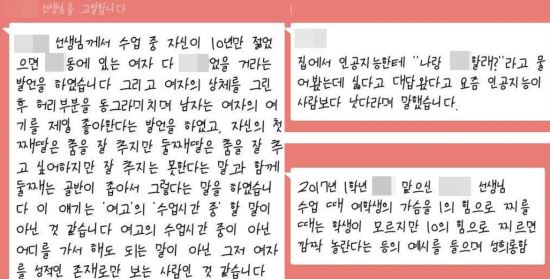 선생님을 고발합니다
선생님께서 수업 중 자신이 10년만 젊었
으면 동에 있는 여자 다 었을 거라는
발언을 하였습니다 그리고 여자의 상체를 그린
후 허리부분을 동그라미치며 남자는 여자의 여
기를 제일 좋아한다는 발언을 하였고, 자신의 첫
째딸은 춤을 잘 추지만 둘째딸은 춤을 잘 추
고 싶어하지만 잘 추지는 못한다는 말과 함께
둘째는 골반이 좁아서 그렇다는 말을 하였습니
다 이 얘기는 '여고'의 '수업시간 중' 할 말이
아닌 것 같습니다 여고의 수업시간 중이 아닌
어디를 가서 해도 되는 말이 아닌 그저 여자
를 성적인 존재로만 보는 사람인 것 같습니다
집에서 인공지능한테 "나랑 할래?"라고 물
어봤는데 싫다고 대답왔다고 요즘 인공지능이
사람보다 낫다라며 말했습니다.
2017년 1학년 맡으신 선생님
수업 때 여학생의 가슴을 1의 힘으로 찌를
때는 학생이 모르지만 10의 힘으로 찌르면
깜짝 놀란다는 등의 예시를 들으며 성희롱함